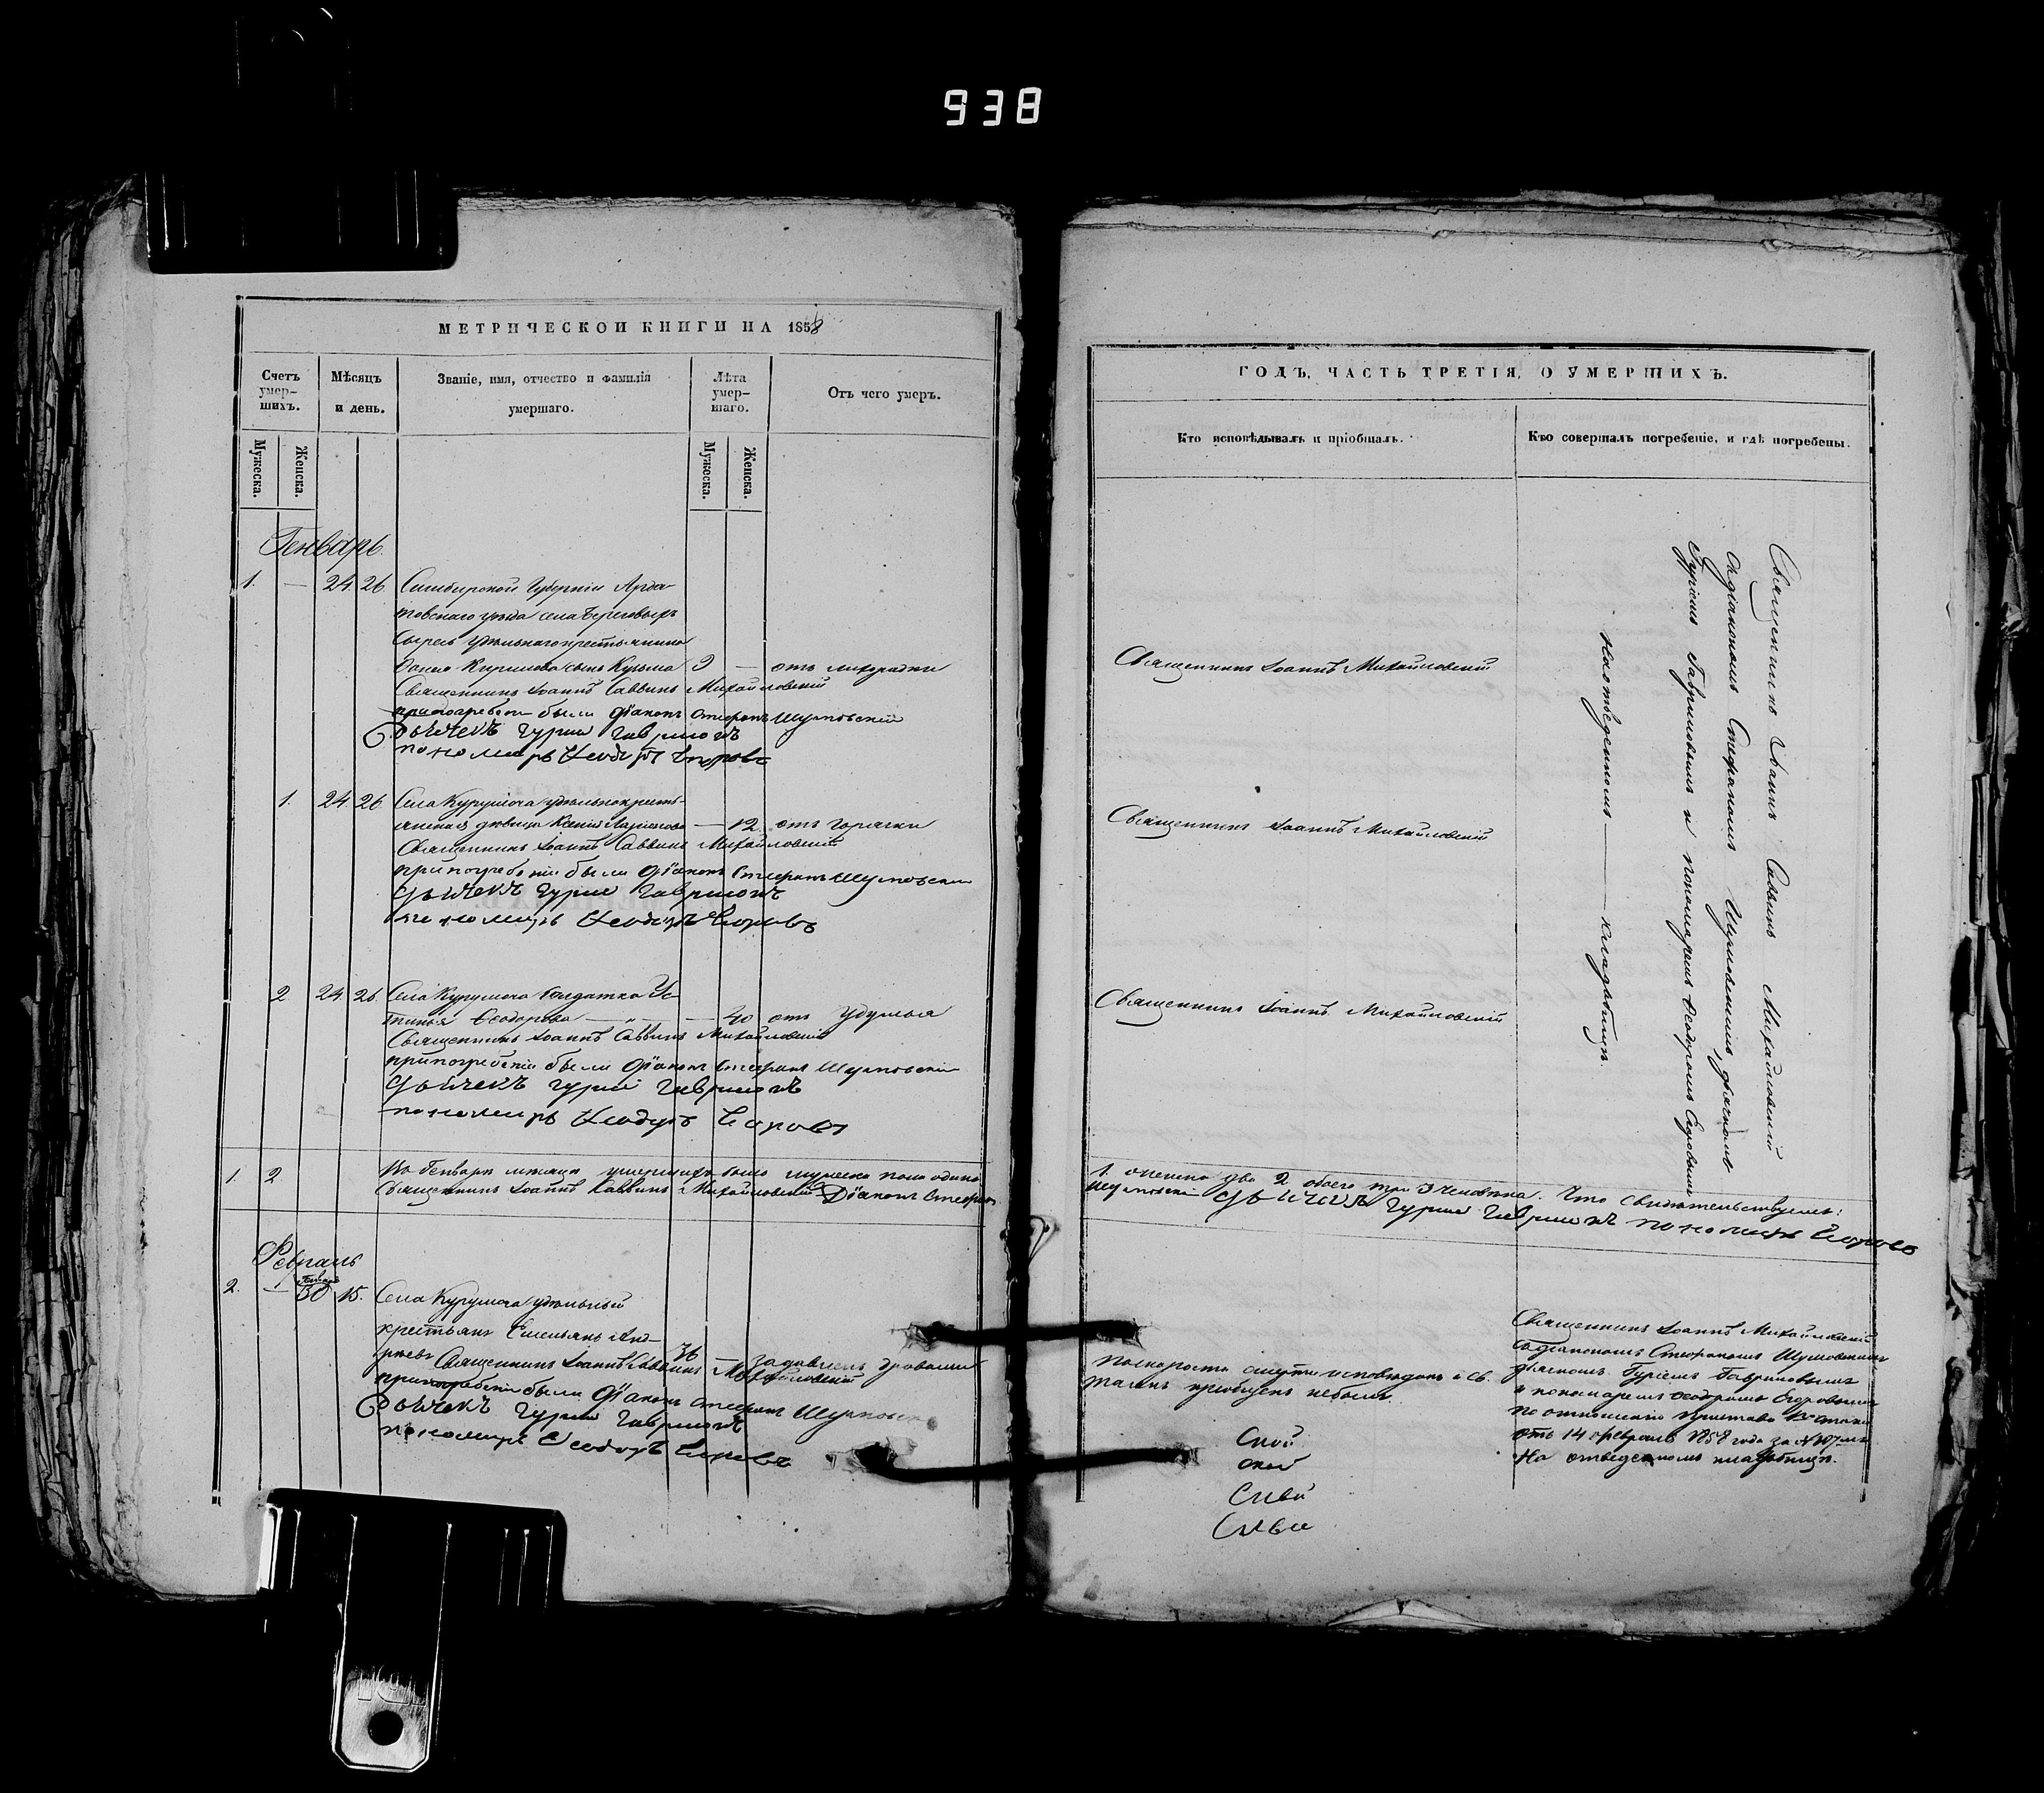 938
МЕТРИЧЕСКОЙ КНИГИ НА 1858
Счетъ умер-шихъ.
Мѣсяцъ и день.
Званіе, имя, отчество и фамилія умершаго.
Лѣта умер-шаго.
Отъ чего умеръ.
Мужеска.
Женска.
Мужеска.
Женска.
Генварь.
1. — 24. 26. Симбирской Губерніи Арда-
товскаго уѣзда села Береговыхъ
Сыресь удѣльнаго крестьянина
Кирилова сынъ Кузьма — отъ лихорадки
Священникъ Іоаннъ Саввинъ Михайловскій
при погребеніи были Діаконъ Стефанъ Шумовскій
Дьячекъ Гурій Гавриловъ
пономарь Ѳеодоръ Егоровъ
1. 24. 26 Села Курумоча удѣльнокресть-
янская дѣвица Ксенія — 12. отъ горячки
Священникъ Іоаннъ Саввинъ Михайловскій
при погребеніи были Діаконъ Стефанъ Шумовскій
Дьячекъ Гурій Гавриловъ
пономарь Ѳеодоръ Егоровъ
2 24. 26. Села Курумоча солдатка Ус-
тинья Ѳеодорова — „ — — 40 отъ удушья
Священникъ Іоаннъ Саввинъ Михайловскій
при погребеніи были Діаконъ Стефанъ Шумовскій
Дьячекъ Гурій Гавриловъ
пономарь Ѳеодоръ Егоровъ
1. 2. Въ Генварѣ мѣсяцѣ умершихъ было мужеска пола одинъ
Священникъ Іоаннъ Саввинъ Михайловскій Діаконъ Стефанъ
Февраль
2. — 30 15. Села Курумоча удѣльный
крестьянъ Емельянъ Анд-
реевъ 36 — задавленъ дровами
Священникъ Іоаннъ Саввинъ Михайловскій
при погребеніи были Діаконъ Стефанъ Шумовскій
Дьячекъ Гурій Гавриловъ
пономарь Ѳеодоръ Егоровъ
ГОДЪ, ЧАСТЬ ТРЕТІЯ, О УМЕРШИХЪ.
Кто исповѣдывалъ и пріобщалъ.
Кто совершалъ погребеніе, и гдѣ погребены.
Священникъ Іоаннъ Михайловскій
Священникъ Іоаннъ Михайловскій
Священникъ Іоаннъ Михайловскій
Священникъ Іоаннъ Саввинъ Михайловскій
съ діакономъ Стефаномъ Шумовскимъ, дьячкомъ
Гуріемъ Гавриловымъ и пономаремъ Ѳеодоромъ Егоровымъ
На отведенномъ — кладбищѣ.
1. женска два 2 обоего три 3 человѣка. Что свидѣтельствуемъ:
Шумовскій Дьячекъ Гурій Гавриловъ пономарь Егоровъ
По скорости смерти исповѣданъ и Св.
Таинъ пріобщенъ небылъ.
Священникъ Іоаннъ Михайловскій
съ діакономъ Стефаномъ Шумовскимъ
дьячкомъ Гуріемъ Гавриловымъ
и пономаремъ Ѳеодоромъ Егоровымъ
По отношенію пристава
отъ 14 февраля 1858 года за №
На отведенномъ кладбищѣ.